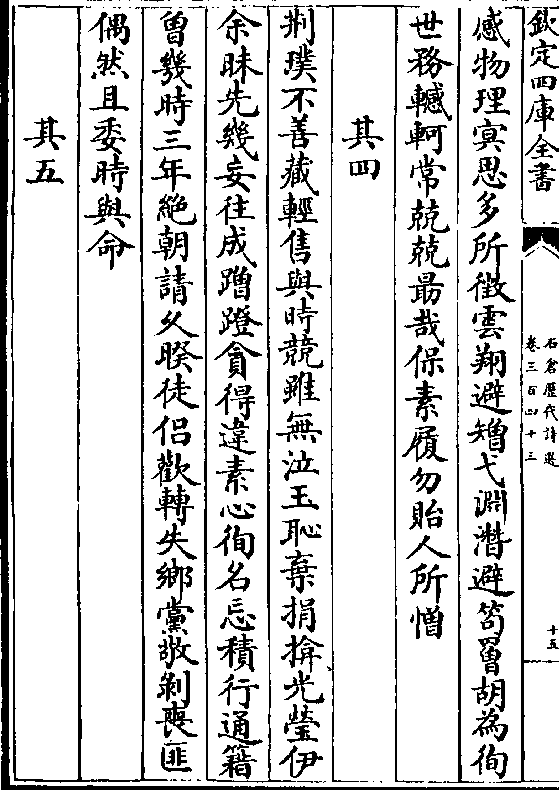 欽定四庫全書
石倉歷代詩選
卷三百四十三
十五
感物理寘思多所徴雲翔避矰弋淵潛避笱罾胡為徇
世務轗軻常兢兢最哉保素履勿貽人所憎
其四
荆璞不善藏輕售與時競雖無泣玉恥棄捐揜光瑩伊
余昧先幾妄往成蹭蹬貪得違素心徇名忘積行通籍
曾幾時三年絶朝請久暌徒侣歡轉失鄉黨敬剝喪匪
偶然且委時與命
其五